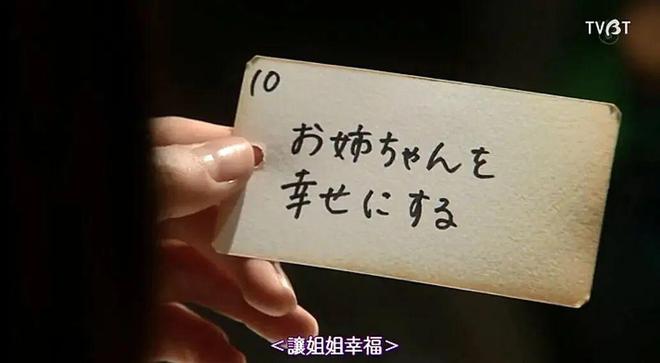 TVBT
10
お姉ちゃんを
幸せにする
<讓姐姐幸福>